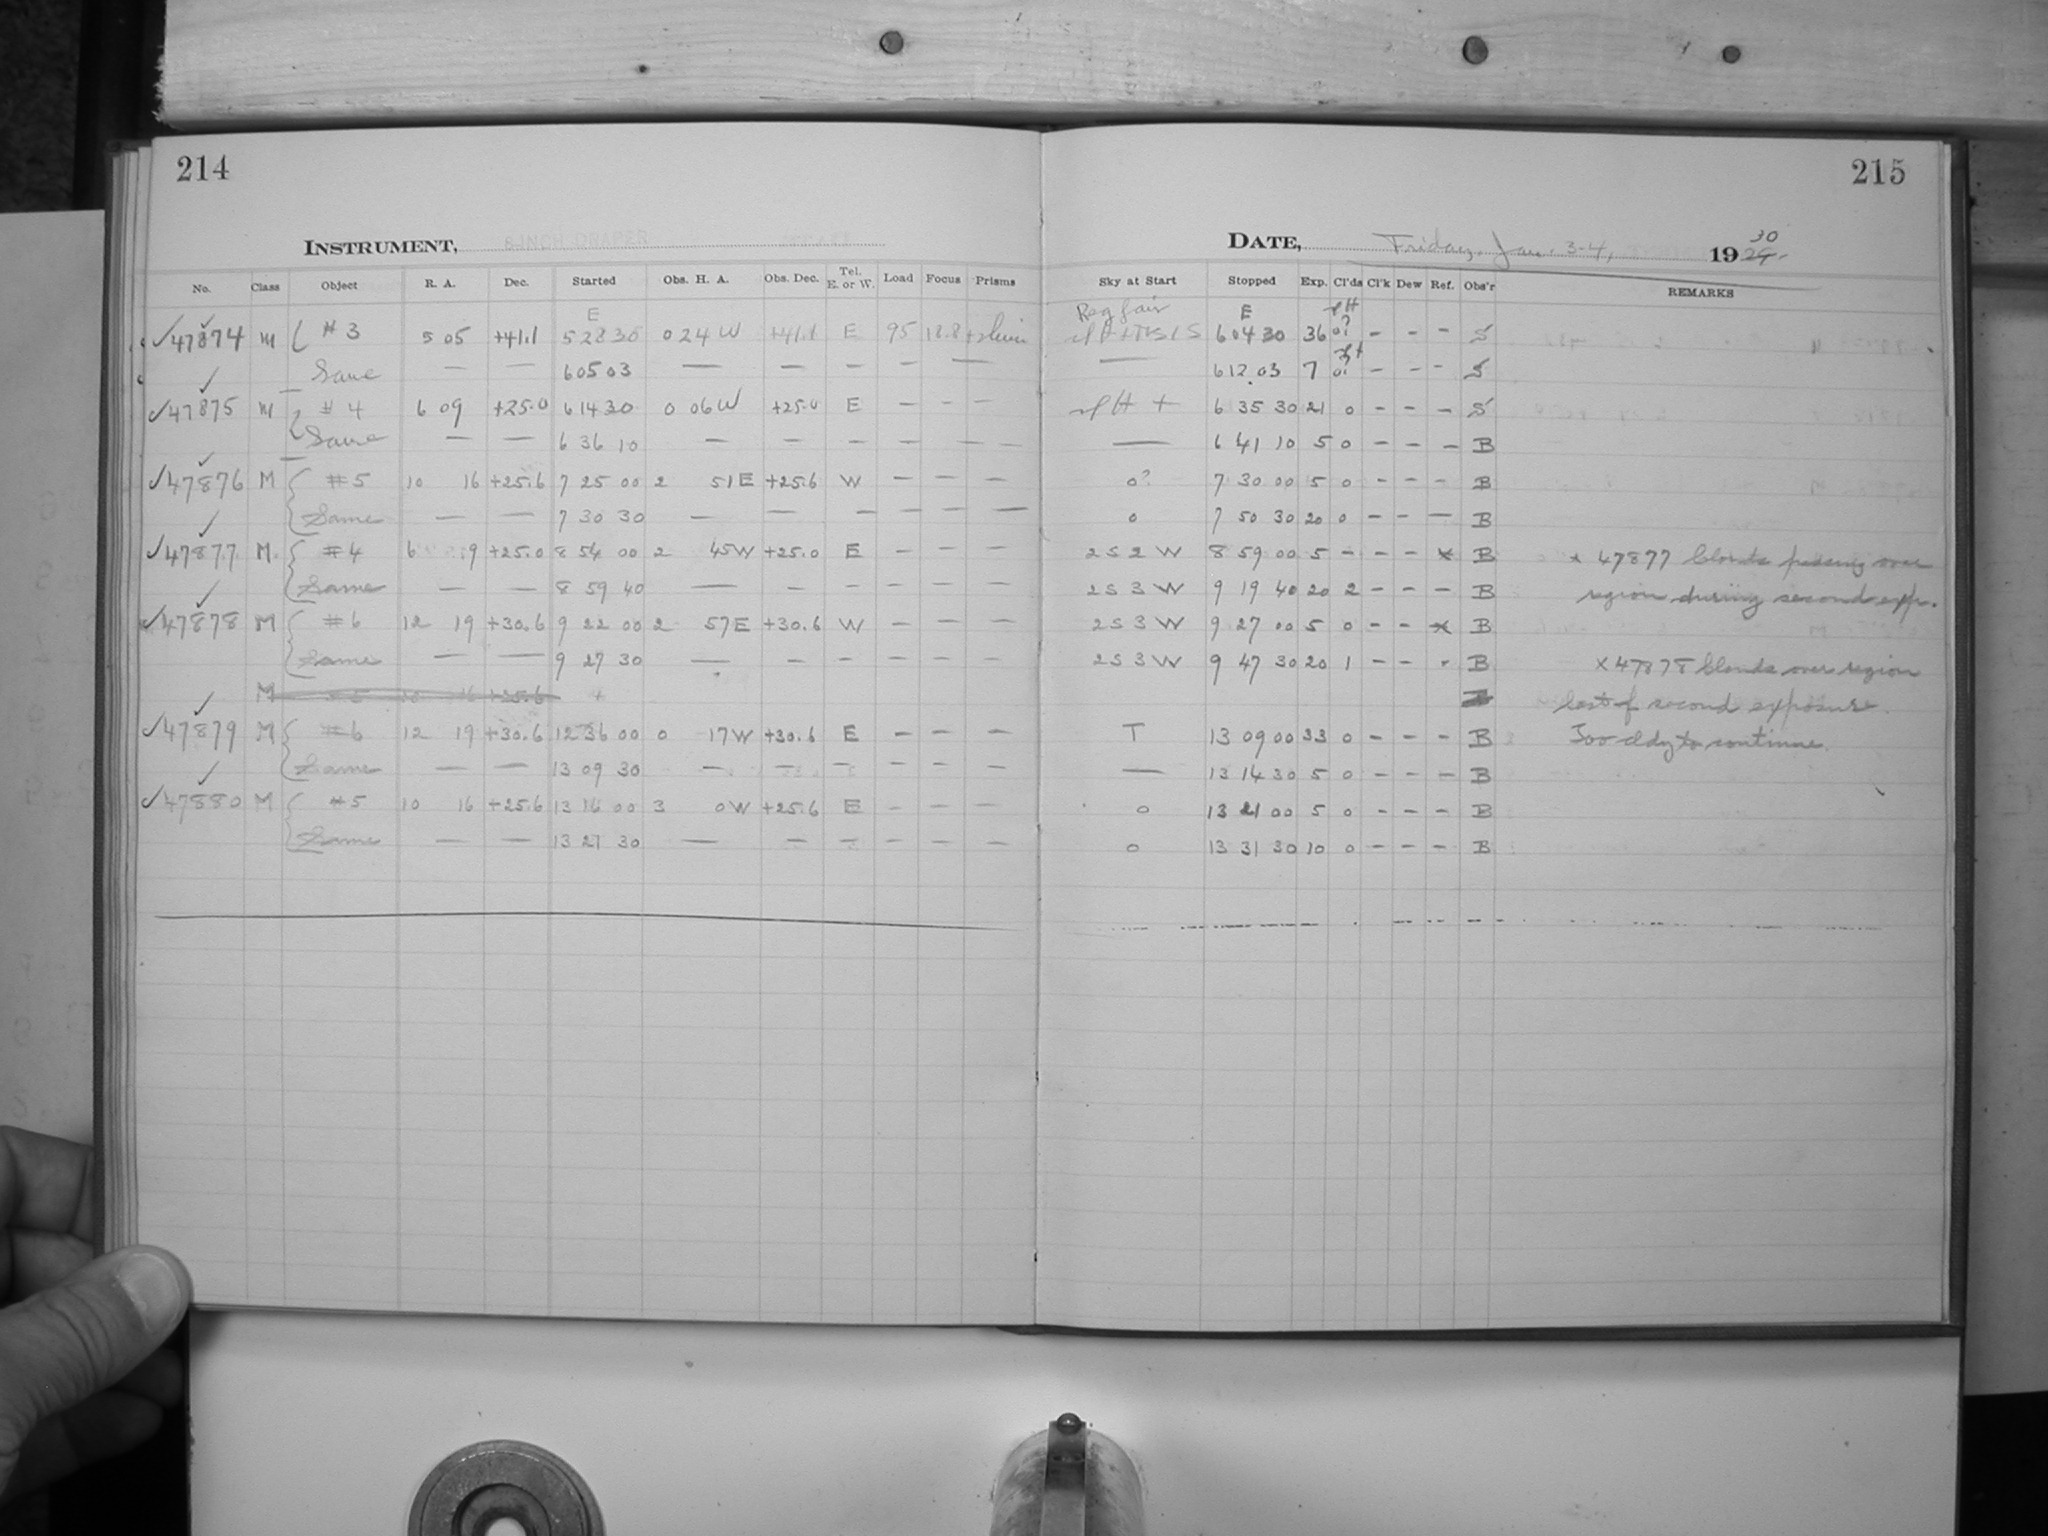 214
215
INSTRUMENT,
DATE, Friday, Jan. 3-4, 1929. 30
No. Class Object R. A. Dec. Started Obs. H. A. Obs. Dec. Tel. E. or W. Load Focus Prisms Sky at Start Stopped Exp. Cl'ds Cl'k Dew Ref. Obs'r REMARKS
E E
47874 M #3 5 05 +41.1 5 28 30 0 24 W +41.1 E 95 6 04 30 36 0? – – – S
Same — — 6 05 03 — — — — — — — 6 12 03 7 0? – – – S
47875 M #4 6 09 +25.0 6 14 30 0 06 W +25.0 E – – – 6 35 30 21 0 – – – S
Same — — 6 36 10 — — — — — — — 6 41 10 5 0 – – – B
47876 M #5 10 16 +25.6 7 25 00 2 51 E +25.6 W – – – 0? 7 30 00 5 0 – – – B
Same — — 7 30 30 — — — — — — 0 7 50 30 20 0 – – – B
47877 M #4 6 9 +25.0 8 54 00 2 45 W +25.0 E – – – 2 S 2 W 8 59 00 5 – – – x B x 47877 Clouds passing over
Same — — 8 59 40 — — — — — — 2 S 3 W 9 19 40 20 2 – – – B region during second exp.
47878 M #6 12 19 +30.6 9 22 00 2 57 E +30.6 W – – – 2 S 3 W 9 27 00 5 0 – – x B
Same — — 9 27 30 — — — — — — 2 S 3 W 9 47 30 20 1 – – - B x 47878 Clouds over region
M #5 10 16 +25.6 B last of second exposure.
47879 M #6 12 19 +30.6 12 36 00 0 17 W +30.6 E – – – T 13 09 00 33 0 – – – B Too cldy to continue.
Same — — 13 09 30 — — — — — — — 13 14 30 5 0 – – – B
47880 M #5 10 16 +25.6 13 16 00 3 0 W +25.6 E – – – 0 13 21 00 5 0 – – – B
Same — — 13 21 30 — — — — — — 0 13 31 30 10 0 – – – B